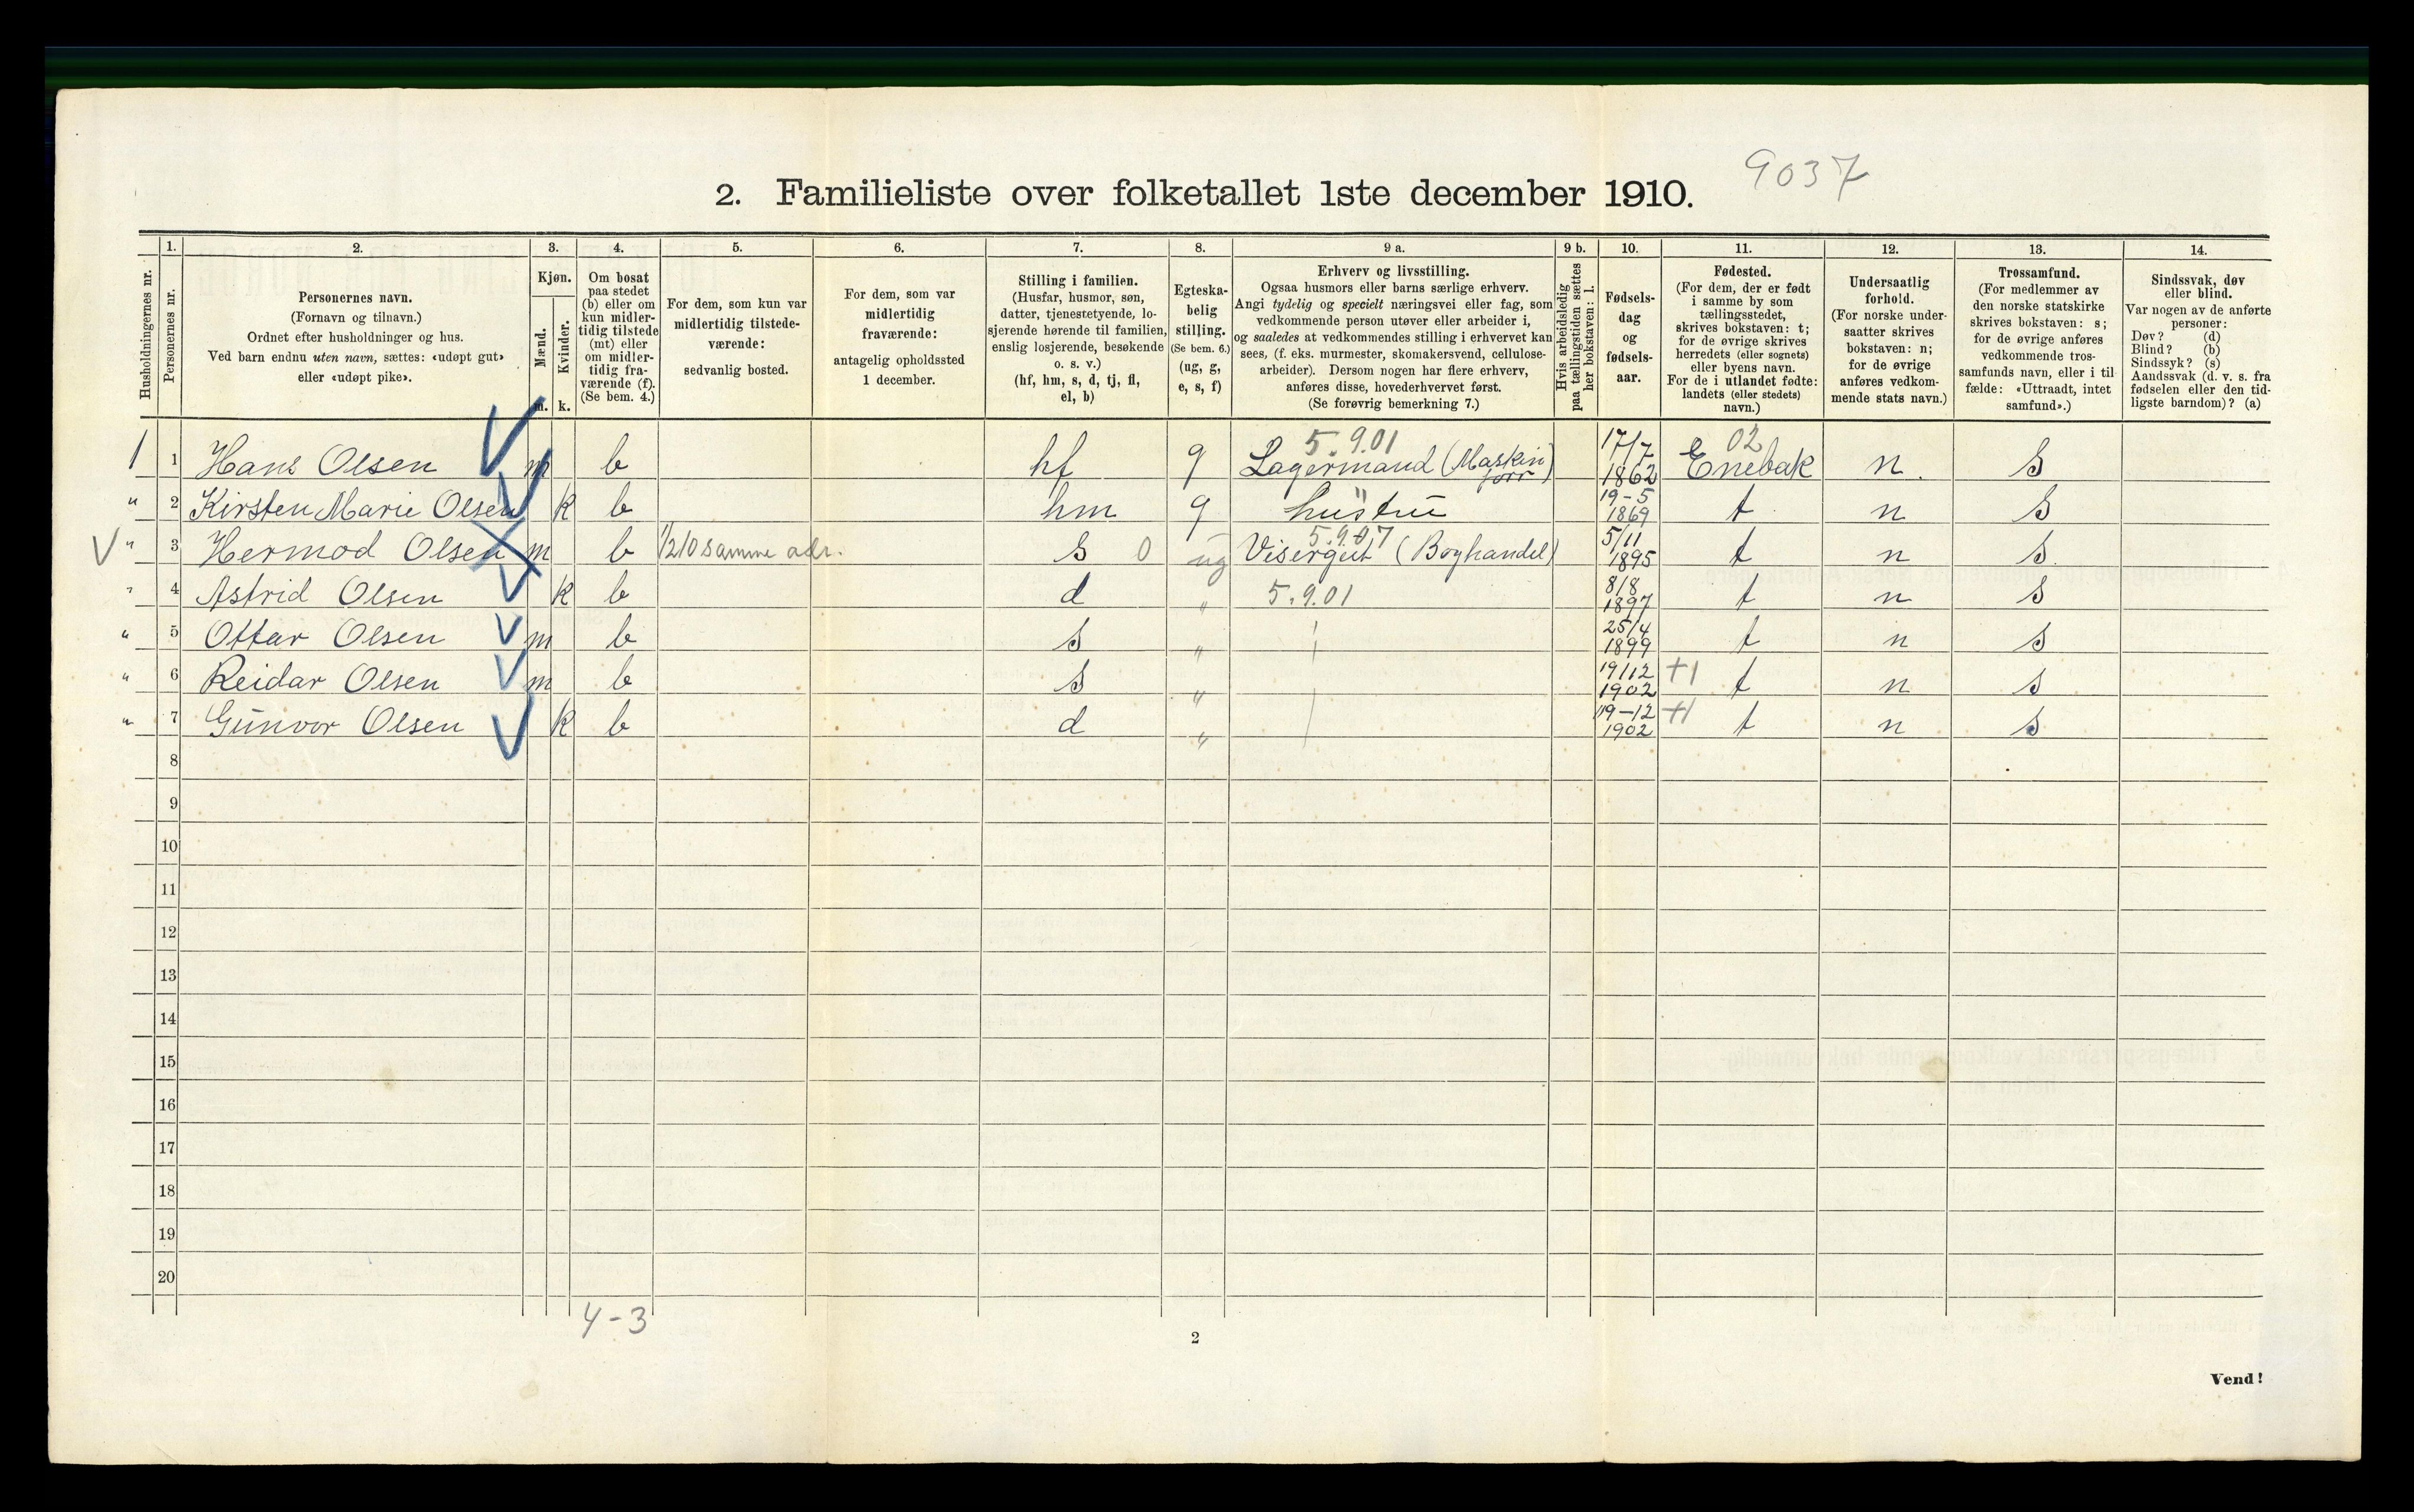 9037
2. Familieliste over folketallet 1ste december 1910.
Husholdningernes nr.
1. Personernes nr.
2. Personernes navn.
(Fornavn og tilnavn.)
Ordnet efter husholdninger og hus.
Ved barn endnu uten navn, sættes: «udøpt gut»
eller «udøpt pike».
3. Kjøn.
Mænd. m.
Kvinder. k.
4. Om bosat
paa stedet
(b) eller om
kun midler-
tidig tilstede
(mt) eller
om midler-
tidig fra-
værende (f).
(Se bem. 4.)
5. For dem, som kun var
midlertidig tilstede-
værende:
sedvanlig bosted.
6. For dem, som var
midlertidig
fraværende:
antagelig opholdssted
1 december.
7. Stilling i familien.
(Husfar, husmor, søn,
datter, tjenestetyende, lo-
sjerende hørende til familien,
enslig losjerende, besøkende
o. s. v.)
(hf, hm, s, d, tj, fl,
el, b)
8. Egteska-
belig
stilling.
(Se bem. 6.)
(ug, g,
e, s, f)
9 a. Erhverv og livsstilling.
Ogsaa husmors eller barns særlige erhverv.
Angi tydelig og specielt næringsvei eller fag, som
vedkommende person utøver eller arbeider i,
og saaledes at vedkommendes stilling i erhvervet kan
sees, (f. eks. murmester, skomakersvend, cellulose-
arbeider). Dersom nogen har flere erhverv,
anføres disse, hovederhvervet først.
(Se forøvrig bemerkning 7.)
9 b. Hvis arbeidsledig
paa tællingstiden sættes
her bokstaven: l.
10. Fødsels-
dag
og
fødsels-
aar.
11. Fødested.
(For dem, der er født
i samme by som
tællingsstedet,
skrives bokstaven: t;
for de øvrige skrives
herredets (eller sognets)
eller byens navn.
For de i utlandet fødte:
landets (eller stedets)
navn.)
12. Undersaatlig
forhold.
(For norske under-
saatter skrives
bokstaven: n;
for de øvrige
anføres vedkom-
mende stats navn.)
13. Trossamfund.
(For medlemmer av
den norske statskirke
skrives bokstaven: s;
for de øvrige anføres
vedkommende tros-
samfunds navn, eller i til-
fælde: «Uttraadt, intet
samfund».)
14. Sindssvak, døv
eller blind.
Var nogen av de anførte
personer:
Døv? (d)
Blind? (b)
Sindssyk? (s)
Aandssvak (d. v. s. fra
fødselen eller den tid-
ligste barndom)? (a)
5.9.01 02
1 1 Hans Olsen m b hf g Lagermand (Maskin forr) 17/7 1862 Enebak n. S
" 2 Kirsten Marie Olsen k b hm g hüstrü 19-5 1869 t n S
5.9.07
" 3 Hermod Olsen m b 1/210 samme adr. s 0 ug Visergut (Boghandel) 5/11 1895 t n S
" 4 Astrid Olsen k b d " 5.9.01 8/8 1897 t n S
" 5 Ottar Olsen m b s " 25/4 1899 t n S
" 6 Reidar Olsen m b s " 19/12 1902 +1 t n S
" 7 Gunvor Olsen k b d " 19-12 1902 +1 t n S
8
9
10
11
12
13
14
15
16
17
18
19
20
4-3
2
Vend!